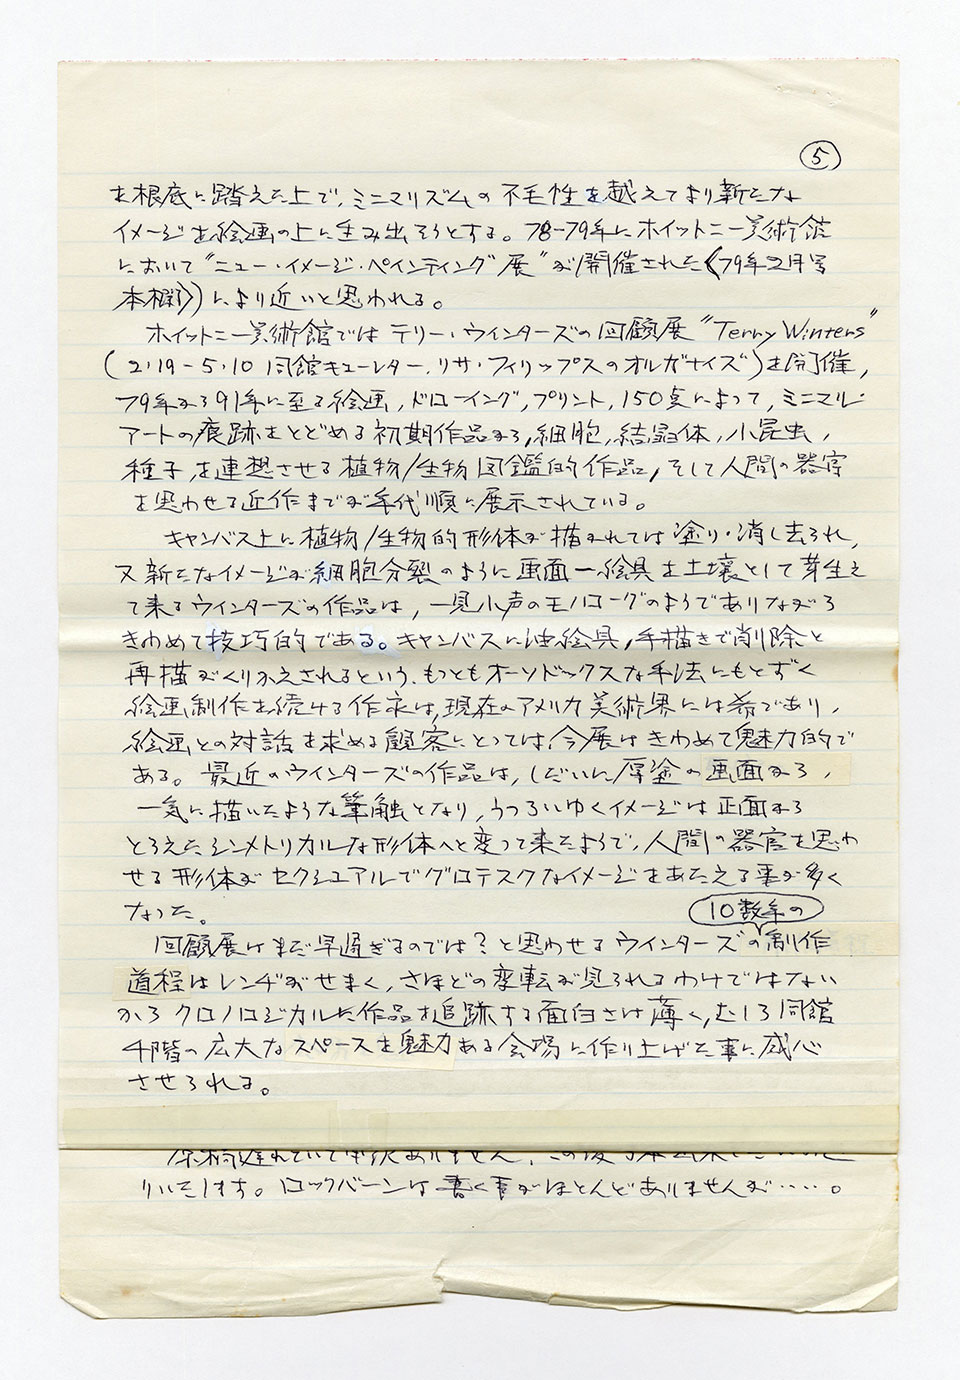 ⑤
を根底に踏えた上で、ミニマリズムの不毛性を越えてより新たな
イメージを絵画の上に生み出そうとする。78-79年にホイットニー美術館
において“ニュー・イメージ・ペインティング展”が開催された《79年2月号
本欄》)により近いと思われる。
ホイットニー美術館ではテリー・ウインターズの回顧展“Terry Winters”
(2・19-5・10 同館キューレター、リサ・フィリップスのオルガナイズ)を開催,
79年から91年に至る絵画,ドローイング,プリント,150点によって,ミニマル・
アートの痕跡をとどめる初期作品から,細胞,結晶体,小昆虫,
種子,を連想させる植物/生物図鑑的作品,そして人間の器官
を思わせる近作までが年代順に展示されている。
キャンバス上に植物/生物的形体が描かれては塗り・消し去られ,
又新たなイメージが細胞分裂のように画面一絵具を土壌として芽生え
て来るウインターズの作品は,一見小声のモノローグのようでありながら
きわめて技巧的である。キャンバスに油絵具,手描きで削除と
再描がくりかえされるという、もっともオーソドックスな手法にもとずく
絵画制作を続ける作家は,現在のアメリカ美術界には希であり,
絵画との対話を求める顧客にとっては,今展はきわめて魅力的で
ある。最近のウインターズの作品は,しだいに厚塗の画面から,
一気に描いたような筆触となり,うつろいゆくイメージは正面から
とらえたシンメトリカルな形体へと変って来たようで,人間の器官を思わ
せる形体がセクシュアルでグロテスクなイメージをあたえる事が多く
なった。
10数年の
回顧展はまだ早過ぎるのでは?と思わせるウインターズの制作
道程はレンヂがせまく,さほどの変転が見られるわけではない
からクロノロジカルに作品を追跡する面白さは薄く,むしろ同館
4階の広大なスペースを魅力ある会場に作り上げた事に感心
させられる。
原稿遅れていて申訳ありません,この後
いたします。ロックバーンは書く事がほとんどありませんが‥‥。